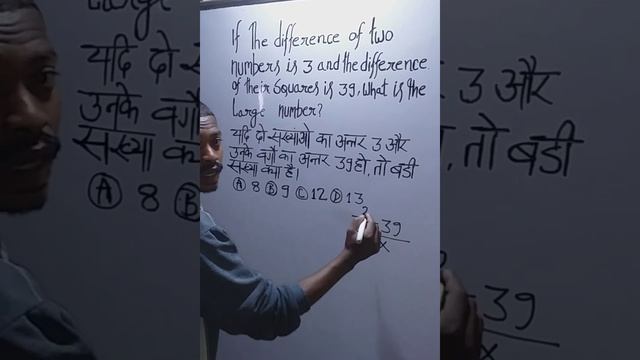 If The difference of two
numbers is 3 and the difference
of their Squares is 39, What is the
Large number?
यदि दो संख्याओं का अन्तर 3 और
उनके वर्गों का अन्तर 39 हो, तो बडी
संख्या क्या है।
Ⓐ 8 Ⓑ 9 Ⓒ 12 Ⓓ 13
39
x